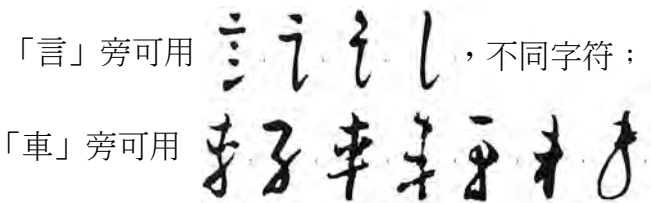 「言」旁可用，不同字符；
「車」旁可用